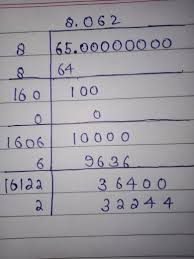 8.062
8 65.00000000
8 64
160 100
0 0
1606 10000
6 9636
16122 36400
2 32244